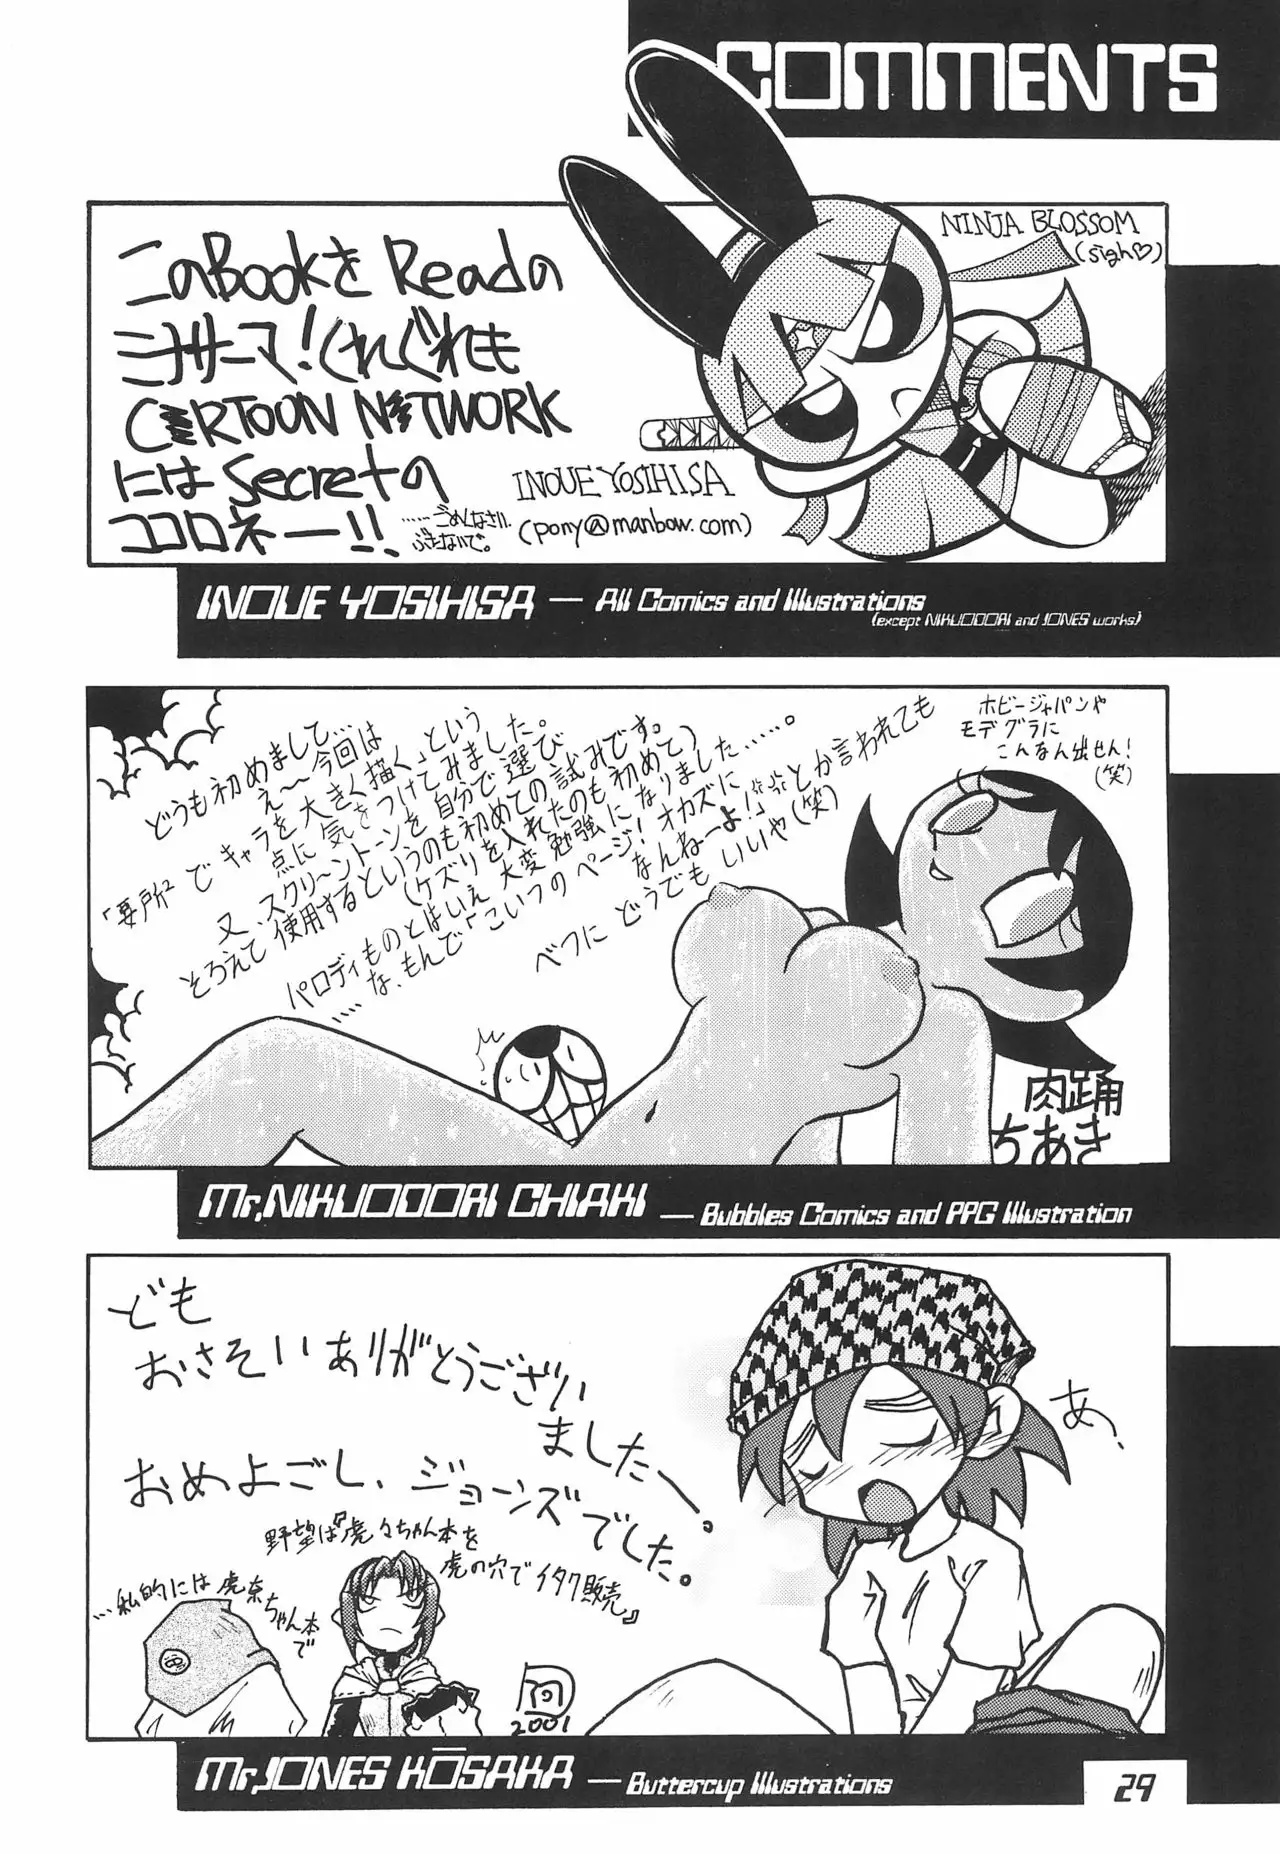 COMMENTS
このBookをReadの
ミナサーマ!くれぐれも
CARTOON NETWORK
にはSecretの
ココロネー!!
……ごめんなさい。
ぶたないで。
INOUE YOSIHISA
(pony@manbow.com)
NINJA BLOSSOM
(sigh♡)
INOUE YOSIHISA — All Comics and Illustrations
(except NIKUODORI and JONES works)
どうも初めまして…
え〜今回は
「要所²でキャラを大きく描く」という
点に気をつけてみました。
又、スクリーントーンを自分で選び
そろえて使用するというのも初めての試みです。
(ケズリを入れたのも初めて)
パロディものとはいえ大変勉強になりました……。
……な、もんで「こいつのページ!オカズに
なんねーよ!」とか言われても
べつにどうでもいいや(笑)
ホビージャパンや
モデグラに
こんなん出せん!
(笑)
肉踊
ちあき
Mr.NIKUODORI CHIAKI — Bubbles Comics and PPG Illustration
ども
おさそいありがとうござい
ましたー。
おめよごし、ジョーンズでした。
野望は『虎々ちゃん本を
虎の穴でイタク販売』
…私的には虎奈ちゃん本で
2001
あ、
Mr.JONES KŌSAKA — Buttercup Illustrations
29